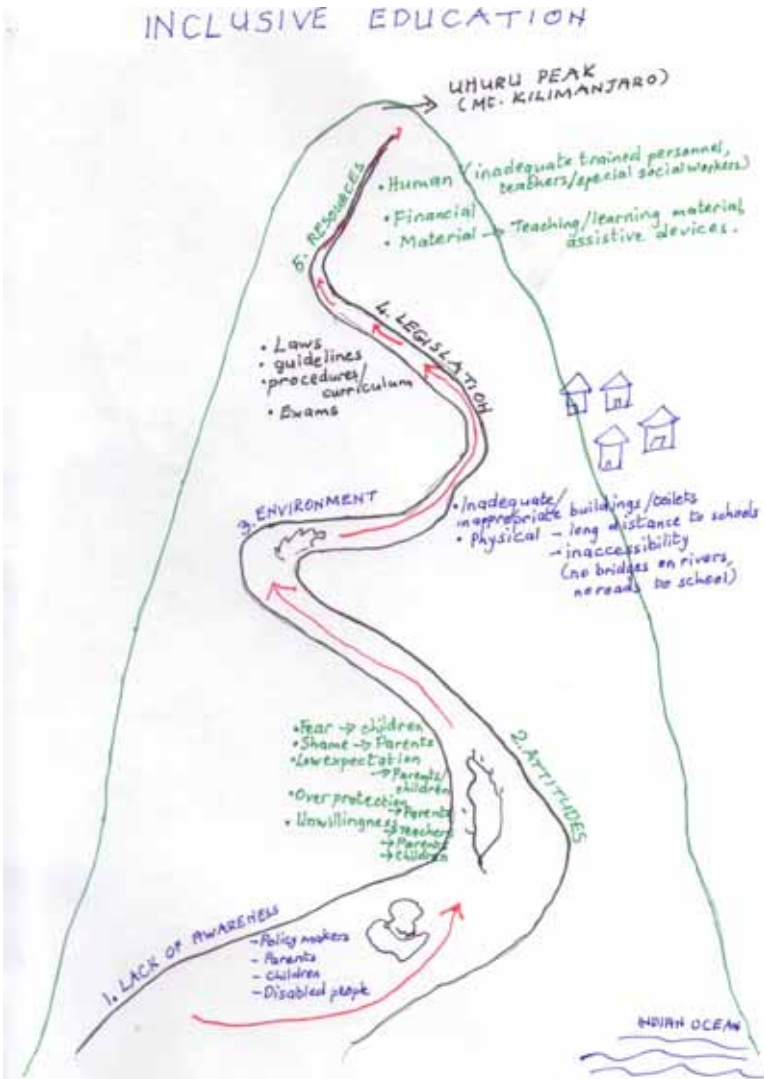 INCLUSIVE EDUCATION
UHURU PEAK
(MT. KILIMANJARO)
5. RESOURCES
• Human / inadequate trained personnel,
teachers/special social workers)
• Financial
• Material → Teaching/learning material,
assistive devices.
4. LEGISLATION
• Laws
• guidelines
• procedures/
curriculum
• Exams
3. ENVIRONMENT
• Inadequate/
inappropriate buildings/toilets
• Physical – long distance to schools
→ inaccessibility
(no bridges on rivers,
no roads to school)
2. ATTITUDES
• Fear → children
• Shame → Parents
• Low expectation
→ Parents/
children
• Over protection
→ Parents
• Unwillingness
→ Teachers
→ Parents
→ Children
1. LACK OF AWARENESS
– Policy makers
– Parents
– Children
– Disabled people
INDIAN OCEAN